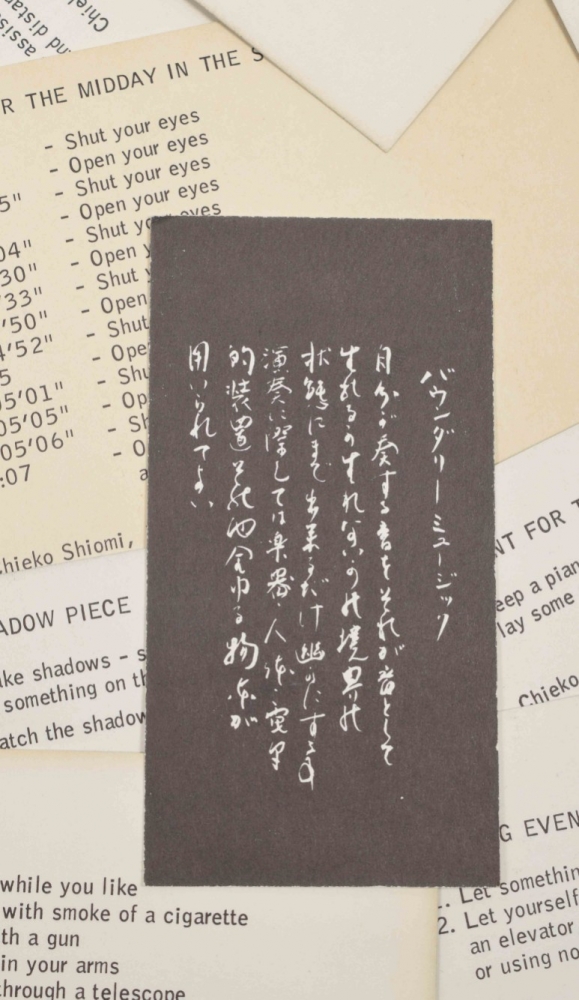 Chiek
assis
nd dista
R THE MIDDAY IN THE S
- Shut your eyes
- Open your eyes
5" - Shut your eyes
- Open your eyes
04" - Shut yo eyes
30" - Open y
'33" - Shut y
'50" - Open
4'52" - Shut
5 - Ope
05'01" - Shu
05'05" - Op
05'06" - Sh
:07 - O
a
hieko Shiomi,
バウンダリー ミュージック
自分が奏する音をそれが音として
生れるか生れないかの境界の
状態にまで出来るだけ幽かにする事
演奏に際しては楽器・人体・
的装置その他全ゆる物体が
用いられてよい
ADOW PIECE
ke shadows - s
something on th
atch the shadow
NT FOR T
eep a pian
lay some
Chieko
while you like
with smoke of a cigarette
th a gun
in your arms
through a telescope
G EVEN
1. Let somethin
2. Let yourself
an elevator
or using no